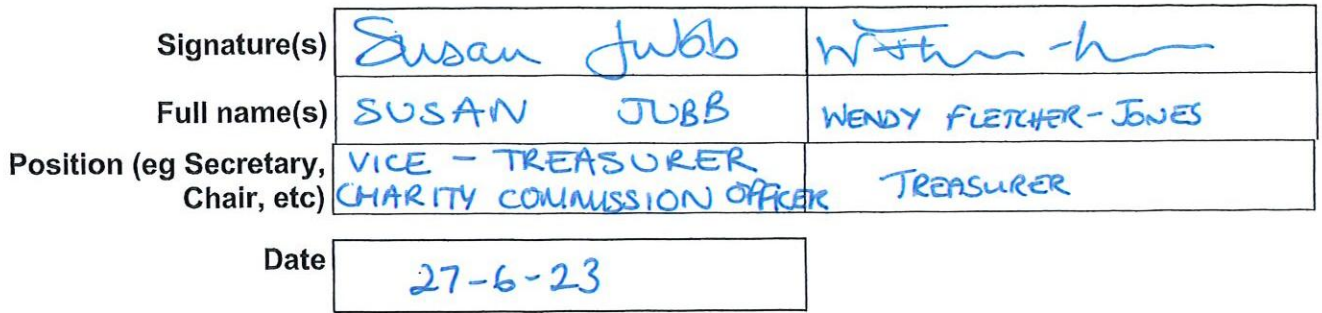 Signature(s) Susan Jubb
Full name(s) SUSAN JUBB WENDY FLETCHER-JONES
Position (eg Secretary, VICE - TREASURER
Chair, etc) CHARITY COMMISSION OFFICER TREASURER
Date 27-6-23